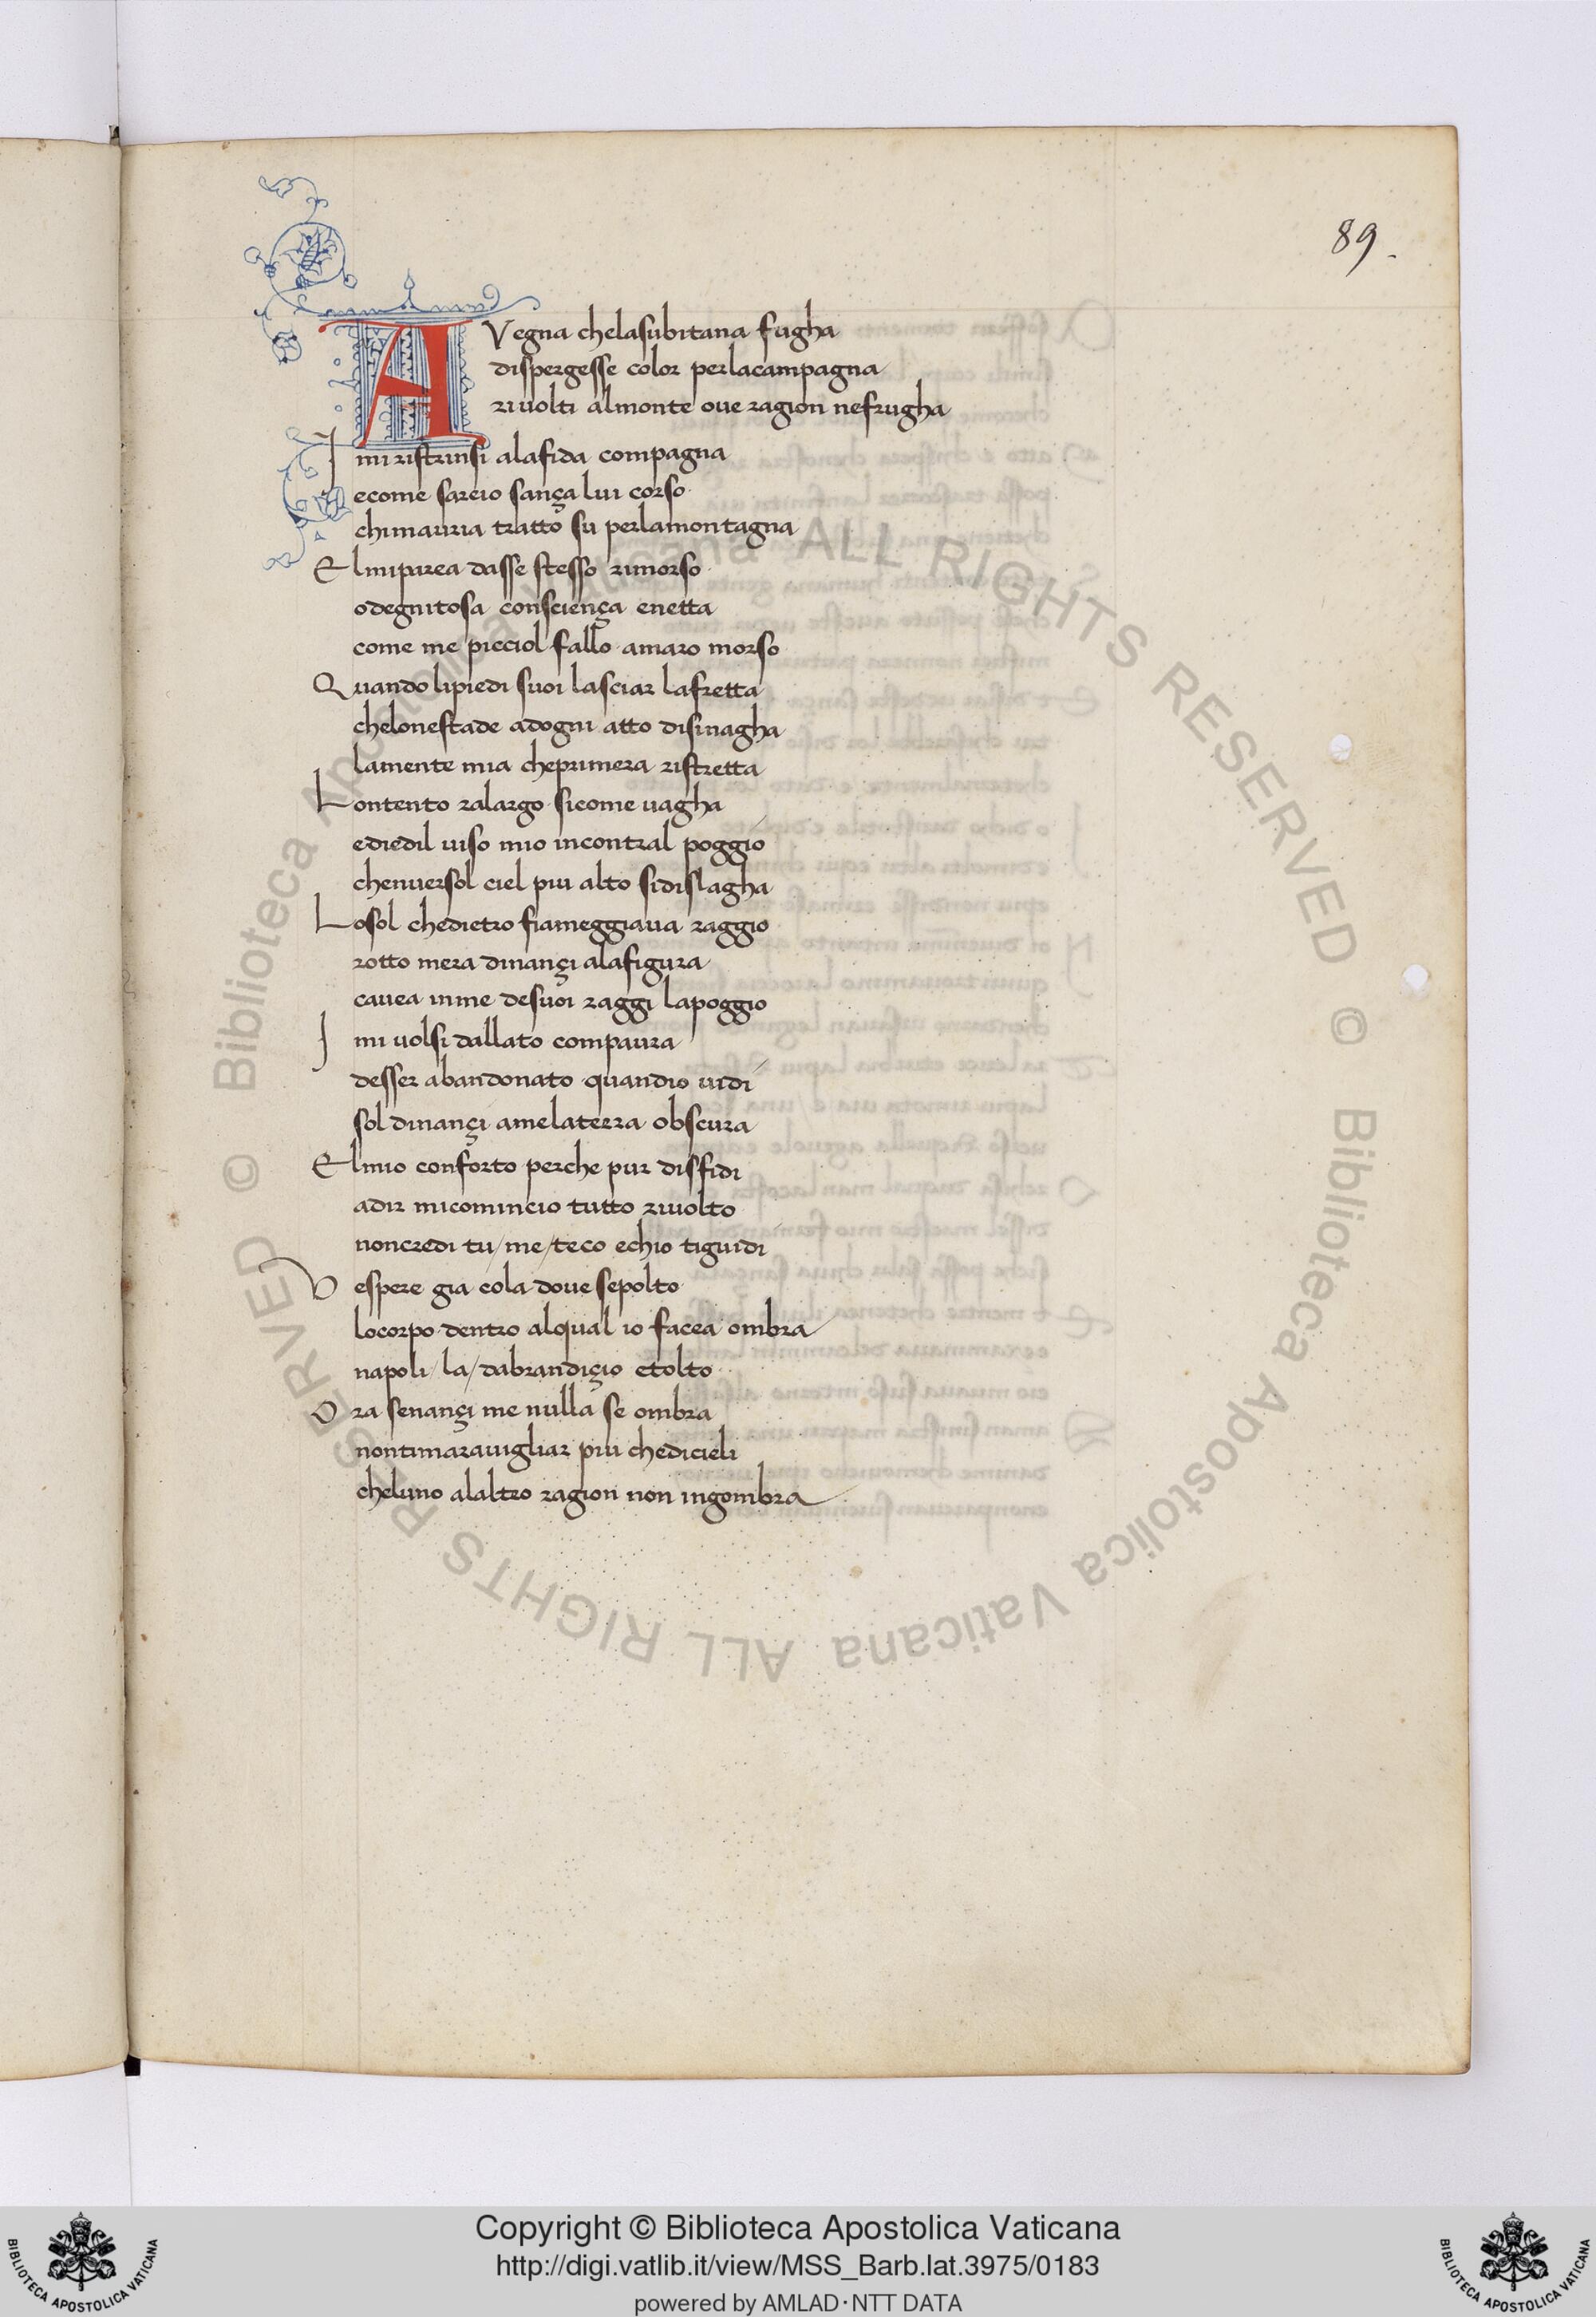 89.
AVegna chelasubitana fugha
dispergesse color perlacampagna
riuolti almonte oue ragion nefrugha
I mi ristrinsi alafida compagna
ecome sareio sança lui corso
chimauria tratto su perlamontagna
Elmiparea dasse stesso rimorso
odegnitosa consciença enetta
come me picciol fallo amaro morso
Quando lipiedi suoi lasciar lafretta
cheloneftade adogni atto disinagha
lamente mia cheprimera ristretta
Lontento ralargo sicome uagha
ediedil uiso mio incontral poggio
chenuersol ciel piu alto sidislagha
Losol chedietro fiameggiaua raggio
rotto mera dinançi alafigura
cauea inme desuoi raggi lapoggio
I mi uolsi dallato compaura
desser abandonato quandio uidi
sol dinançi amelaterra obscura
Elmio conforto perche pur diffidi
adir micomincio tutto riuolto
noncredi tu/me/teco echio tiguidi
Vespere gia cola doue sepolto
locorpo dentro alqual io facea ombra
napoli/la/dabrandiçio etolto
Ora senançi me nulla se ombra
nontimarauigliar piu chedicieli
cheluno alaltro ragion non ingombra
© Biblioteca Apostolica Vaticana ALL RIGHTS RESERVED © Biblioteca Apostolica Vaticana ALL RIGHTS RESERVED
Copyright © Biblioteca Apostolica Vaticana
http://digi.vatlib.it/view/MSS_Barb.lat.3975/0183
powered by AMLAD·NTT DATA
BIBLIOTECA APOSTOLICA VATICANA
BIBLIOTECA APOSTOLICA VATICANA